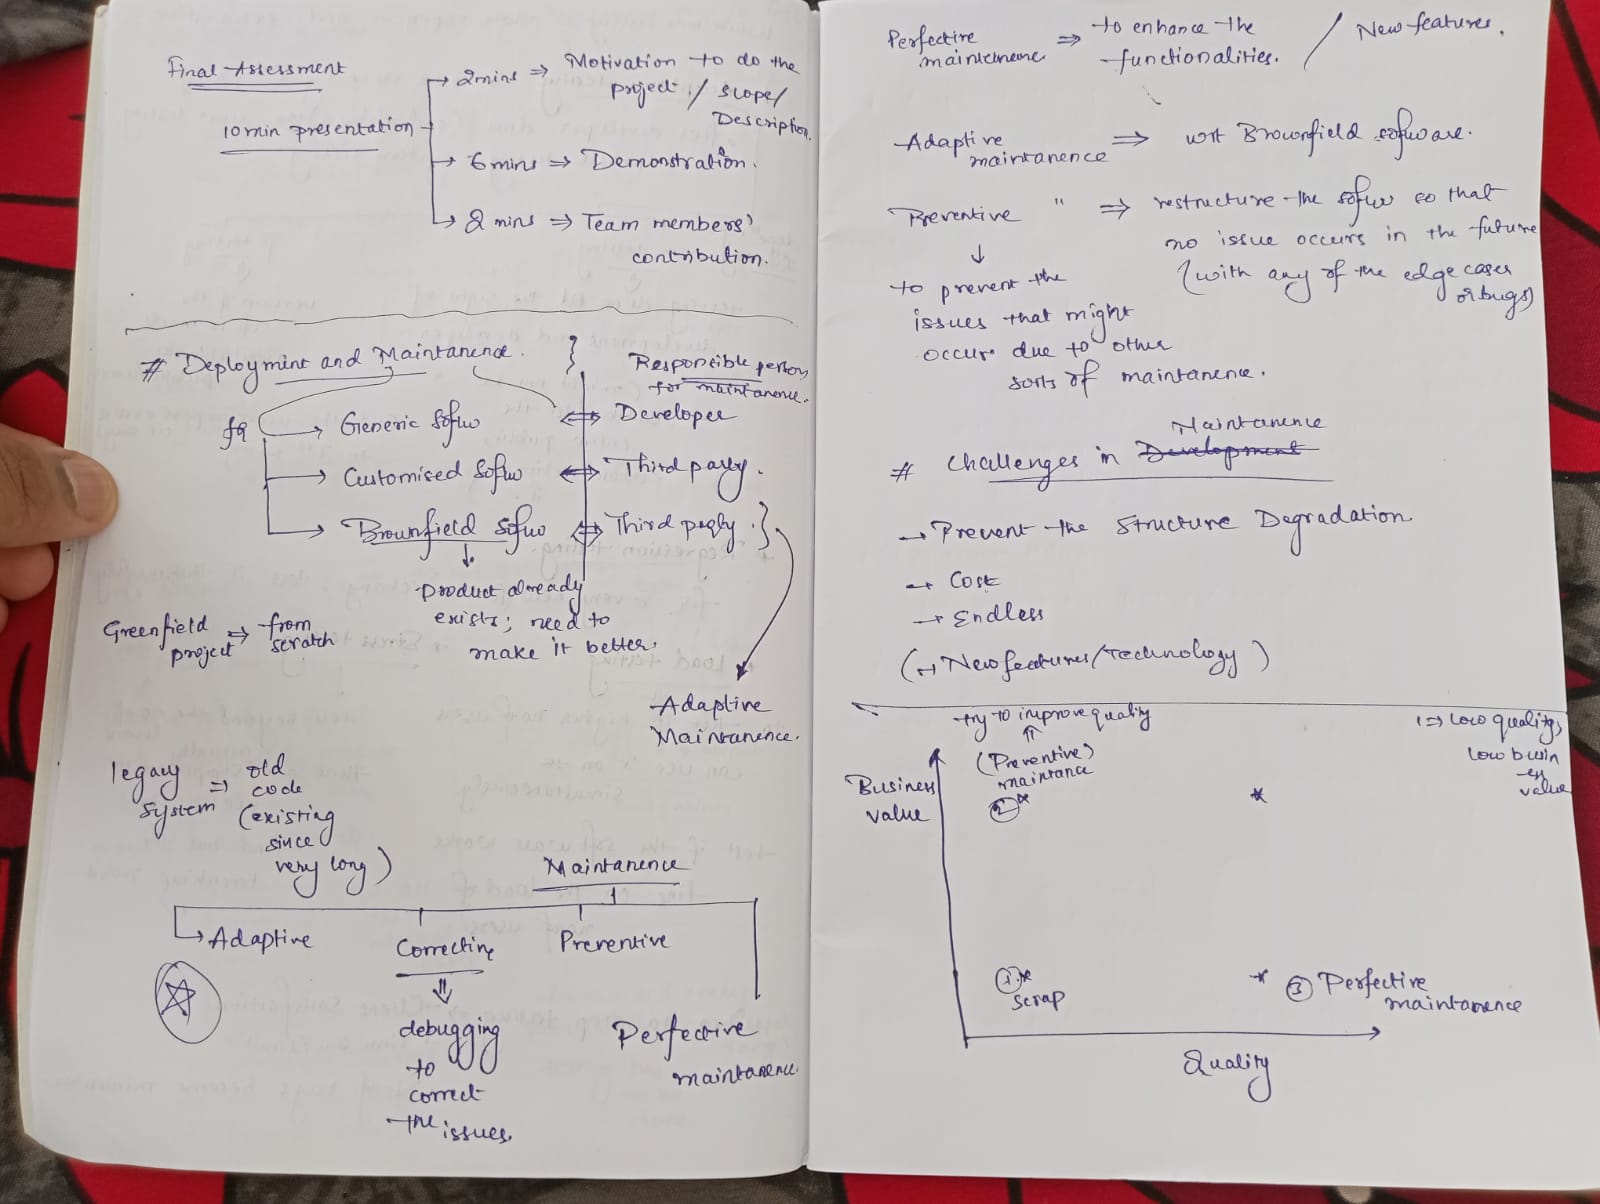 Final Assessment
10 min presentation
→ 2mins ⇒ Motivation to do the
project / scope/
Description.
→ 6 mins ⇒ Demonstration.
→ 2 mins ⇒ Team members'
contribution.
# Deployment and Maintanence.
Responsible person
for maintanence.
→ Generic Sofw ⇔ Developer
→ Customised Sofw ⇔ Third party.
→ Brownfield Sofw ⇔ Third party.
↓
product already
exists; need to
make it better.
Greenfield project ⇒ from scratch
Adaptive
Maintanence.
legacy system ⇒ old
code
(existing
since
very long)
Maintanence
→ Adaptive
Corrective
Preventive
⇓
debugging
to
correct
the issues.
Perfective
maintanence
Perfective maintenence ⇒ to enhance the
functionalities. / New features.
Adaptive
maintanence ⇒ wrt Brownfield sofware.
Preventive " ⇒ restructure the sofw so that
no issue occurs in the future
(with any of the edge cases
or bugs)
↓
to prevent the
issues that might
occur due to other
sorts of maintanence.
Maintanence
# Challenges in Development
→ Prevent the Structure Degradation.
→ Cost
→ Endless
(→ New features/Technology)
try to improve quality
⇑
(Preventive)
maintance
② *
*
1 ⇒ low quality,
low busin
ess
value
Business
value
① *
scrap
* ③ Perfective
maintanence
Quality